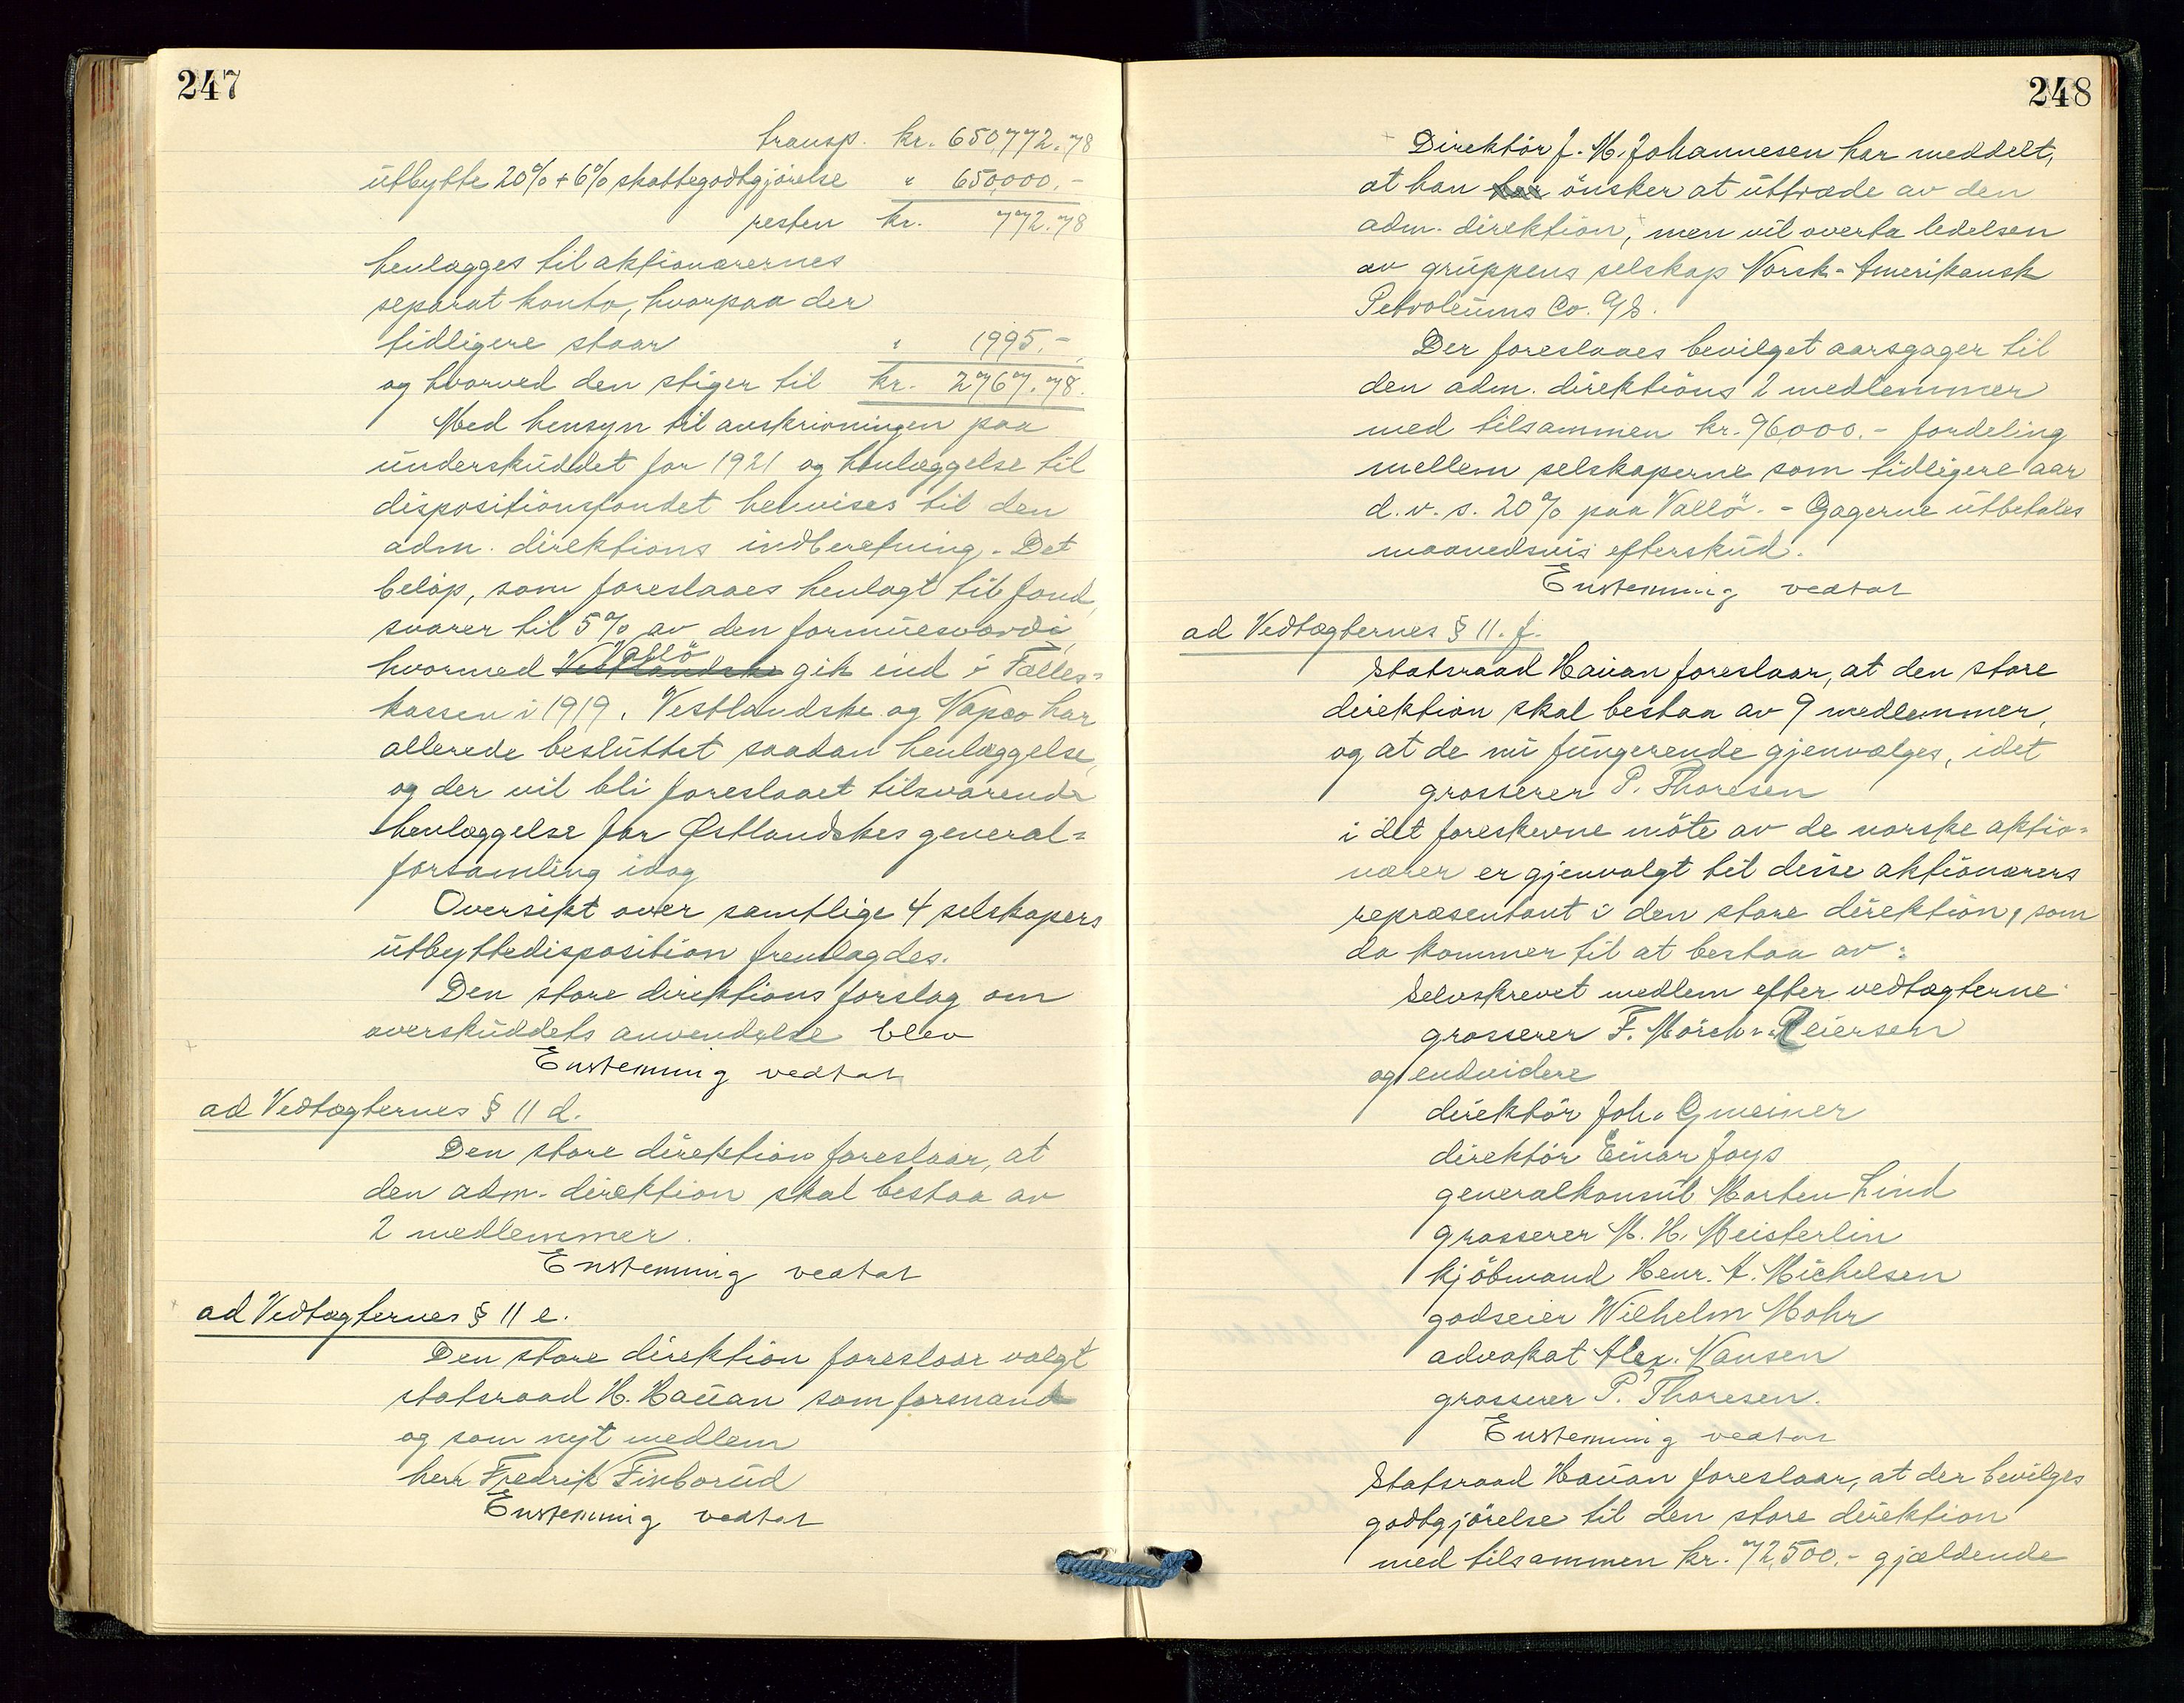 247
transp. kr. 650,772.78
utbytte 20% + 6% skattegodtgjørelse " 650,000.-
resten kr. 772.78
henlægges til aktionærernes
separat konto, hvorpaa der
tidligere staar " 1995.-
og hvorved den stiger til kr. 2767.78.
Med hensyn til avskrivningen paa
underskuddet for 1921 og henlæggelse til
dispositionsfondet henvises til den
adm. direktions indberetning. - Det
beløp, som foreslaaes henlagt til fond,
svarer til 5% av den formuesværdi
hvormed Vestlandske Vallö gik ind i Fælles-
kassen i 1919. Vestlandske og Napco har
allerede besluttet saadan henlæggelse,
og der vil bli foreslaaet tilsvarende
henlæggelse for Østlandskes general-
forsamling idag
Oversikt over samtlige 4 selskapers
utbyttedisposition fremlagdes.
Den store direktions forslag om
overskuddets anvendelse blev
Enstemmig vedtat
ad Vedtægternes § 11 d.
Den store direktion foreslaar, at
den adm. direktion skal bestaa av
2 medlemmer.
Enstemmig vedtat
ad Vedtægternes § 11 e.
Den store direktion foreslaar valgt
statsraad H. Hauan som formand
og som nyt medlem
herr Fredrik Finborud
Enstemmig vedtat
248
Direktör J. M. Johannesen har meddelt,
at han har önsker at uttræde av den
adm. direktion, men vil overta ledelsen
av gruppens selskap Norsk-Amerikansk
Petroleums Co. A/S.
Der foreslaaes bevilget aarsgager til
den adm. direktions 2 medlemmer
med tilsammen kr. 96000.- fordeling
mellem selskaperne som tidligere aar
d.v.s. 20% paa Vallö. - Gagerne utbetales
maanedsvis efterskud.
Enstemmig vedtat
ad Vedtægternes § 11. f.
Statsraad Hauan foreslaar, at den store
direktion skal bestaa av 9 medlemmer,
og at de nu fungerende gjenvælges, idet
grosserer P. Thoresen
i det foreskrevne möte av de norske aktio-
nærer er gjenvalgt til disse aktionærers
repræsentant i den store direktion, som
da kommer til at bestaa av:
Selvskrevet medlem efter vedtægterne:
grosserer F. Mörch-Reiersen
og endvidere
direktör Joh. Gmeiner
direktör Einar Joys
generalkonsul Morten Lind
grosserer M. H. Meisterlin
kjöbmand Henr. A. Michelsen
godseier Wilhelm Mohr
advokat Alex. Nansen
grosserer P. Thoresen.
Enstemmig vedtat
Statsraad Hauan foreslaar, at der bevilges
godtgjörelse til den store direktion
med tilsammen kr. 72,500.- gjældende